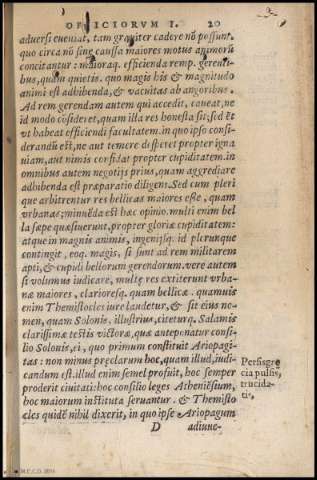 OFFICIORVM I. 20
aduersi eueniat, tam grauiter cadere nõ possunt.
quo circa nõ sine caussa maiores motus animorũ
concitantur: maioraq. efficienda remp. gerenti-
bus, quàm quietis. quo magis his & magnitudo
animi est adhibenda, & vacuitas ab angoribus.
Ad rem gerendam autem qui accedit, caueat, ne
id modo cõsideret, quam illa res honesta sit; sed et
vt habeat efficiendi facultatem. in quo ipso consi-
derandũ est, ne aut temere desperet propter igna
uiam, aut nimis confidat propter cupiditatem. in
omnibus autem negotijs prius, quam aggrediare
adhibenda est præparatio diligens. Sed cum pleri
que arbitrentur res bellicas maiores esse, quam
vrbanas; minuẽda est hæc opinio. multi enim bel
la sæpe quæsiuerunt, propter gloriæ cupiditatem:
atque in magnis animis, ingenijsq. id plerunque
contingit, eoq. magis, si sunt ad rem militarem
apti, & cupidi bellorum gerendorum. vere autem
si volumus iudicare, multæ res extiterunt vrba-
næ maiores, clarioresq. quam bellicæ. quamuis
enim Themistocles iure laudetur, & sit eius no-
men, quam Solonis, illustrius, citeturq. Salamis
clarissimæ testis victoræ, quæ anteponatur consi-
lio Solonis, ei, quo primum constituit Ariopagi-
tas: non minus præclarum hoc, quam illud, iudi-
candum est. illud enim semel profuit, hoc semper
proderit ciuitati: hoc consilio leges Atheniẽsium,
hoc maiorum instituta seruantur. & Themisto
cles quidẽ nihil dixerit, in quo ipse Ariopagum
D adiuue-
Persis grę
cia pulsis,
trucida-
tis.